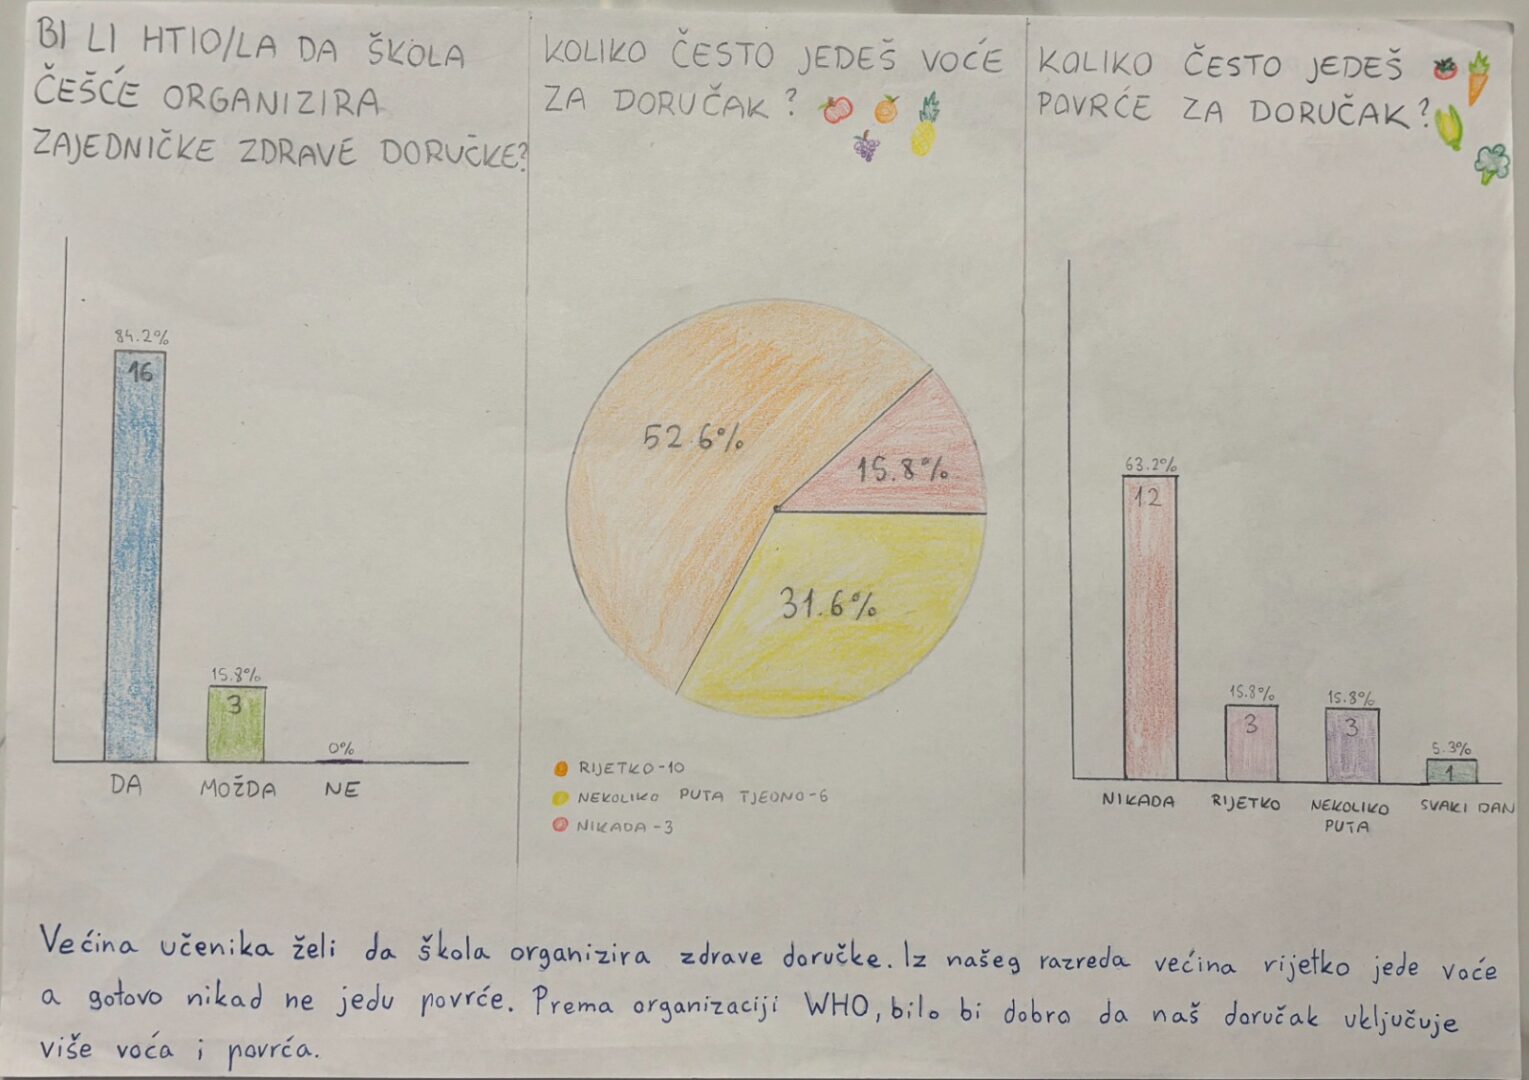 BI LI HTIO/LA DA ŠKOLA
ČEŠĆE ORGANIZIRA
ZAJEDNIČKE ZDRAVE DORUČKE?
84.2%
16
15.8%
3
0%
DA
MOŽDA
NE
KOLIKO ČESTO JEDEŠ VOĆE
ZA DORUČAK?
52.6%
15.8%
31.6%
RIJETKO-10
NEKOLIKO PUTA TJEDNO-6
NIKADA-3
KOLIKO ČESTO JEDEŠ
POVRĆE ZA DORUČAK?
63.2%
12
15.8%
3
15.8%
3
5.3%
1
NIKADA
RIJETKO
NEKOLIKO
PUTA
SVAKI DAN
Većina učenika želi da škola organizira zdrave doručke. Iz našeg razreda većina rijetko jede voće
a gotovo nikad ne jedu povrće. Prema organizaciji WHO, bilo bi dobro da naš doručak uključuje
više voća i povrća.